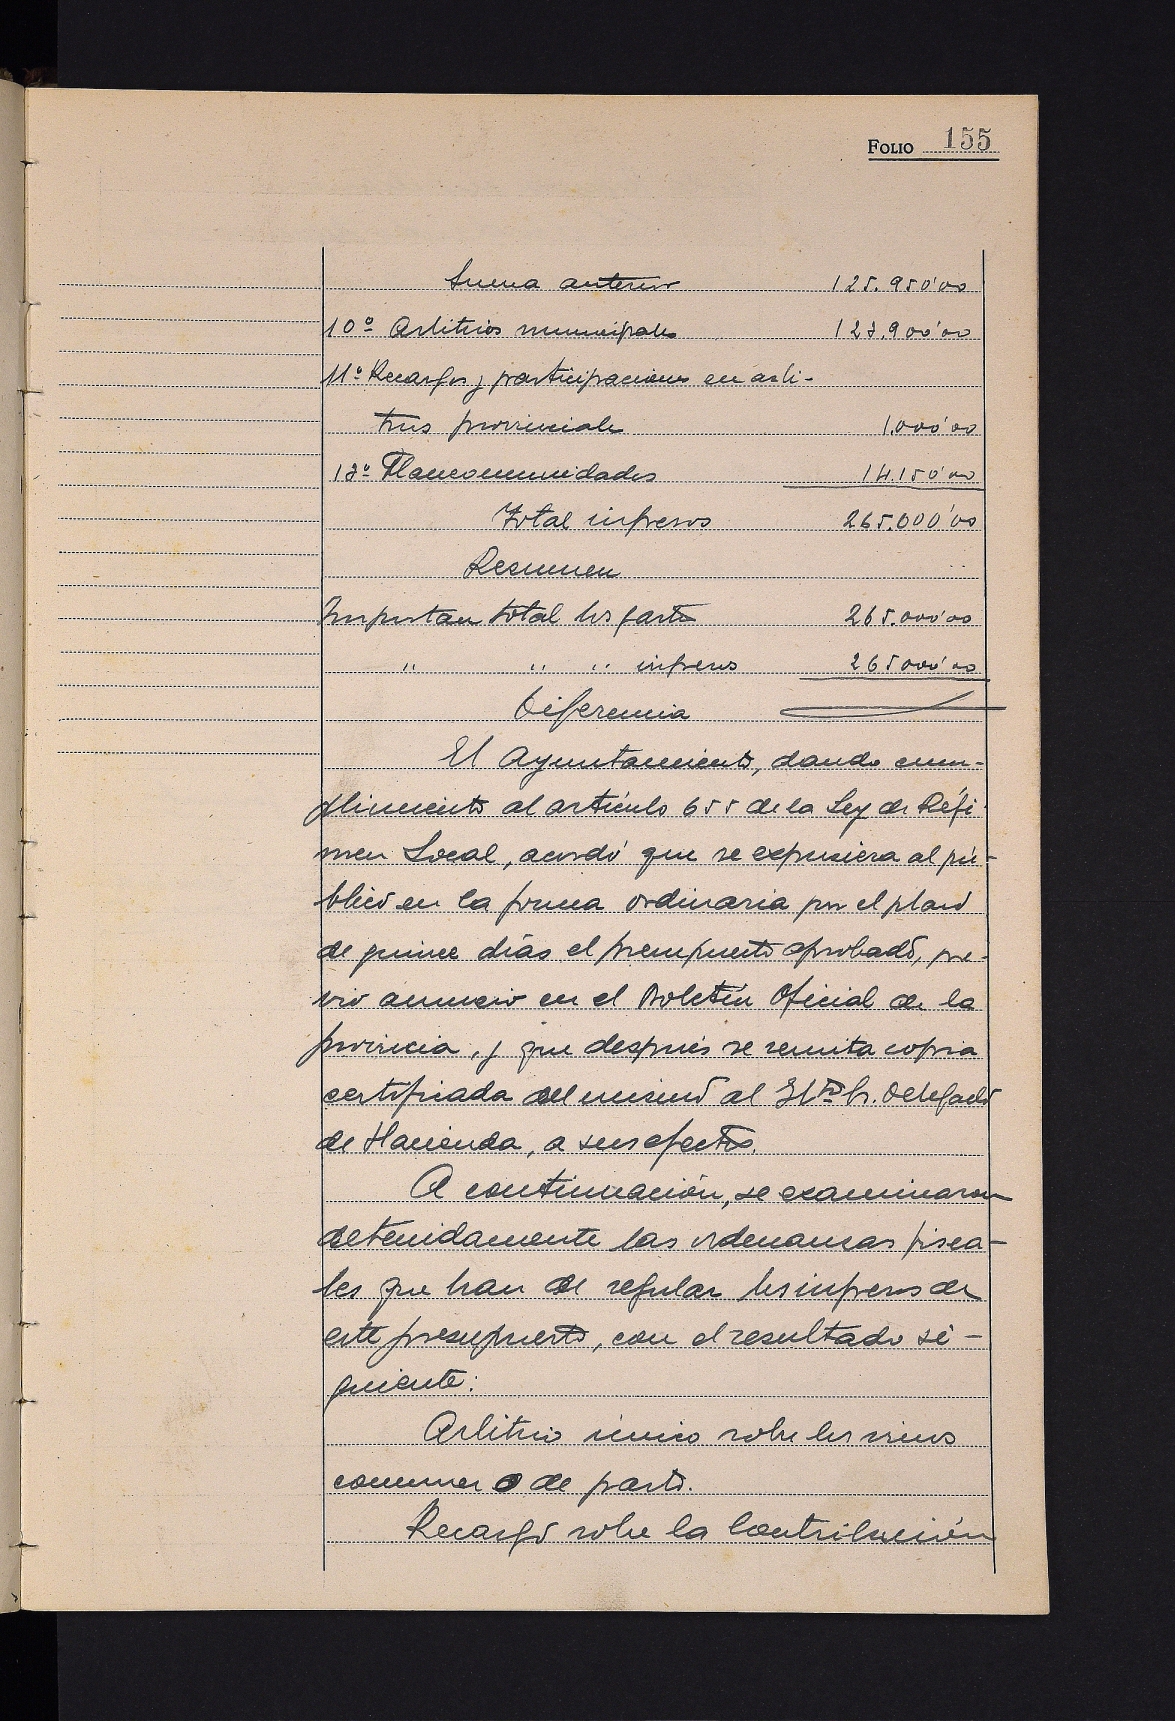 FOLIO 155
Suma anterior 125.950'00
10º Arbitrios municipales 123.900'00
11º Recargos y participaciones en arbi-
trios provinciales 1.000'00
13º Mancomunidades 14.150'00
Total ingresos 265.000'00
Resumen
Importan total los gastos 265.000'00
" " " ingresos 265000'00
Diferencia
El Ayuntamiento, dando cum-
plimiento al artículo 655 de la Ley de Régi-
men Local, acordó que se expusiera al pú-
blico en la forma ordinaria por el plazo
de quince días el presupuesto aprobado, pre-
vio anuncio en el Boletín Oficial de la
provincia, y que después se remita copia
certificada del mismo al Iltmo Sr. Delegado
de Hacienda, a sus efectos.
A continuación, se examinaron
detenidamente las ordenanzas fisca-
les que han de regular los ingresos de
este presupuesto, con el resultado si-
guiente:
Arbitrio único sobre los vinos
comunes o de pasto.
Recargo sobre la Contribución